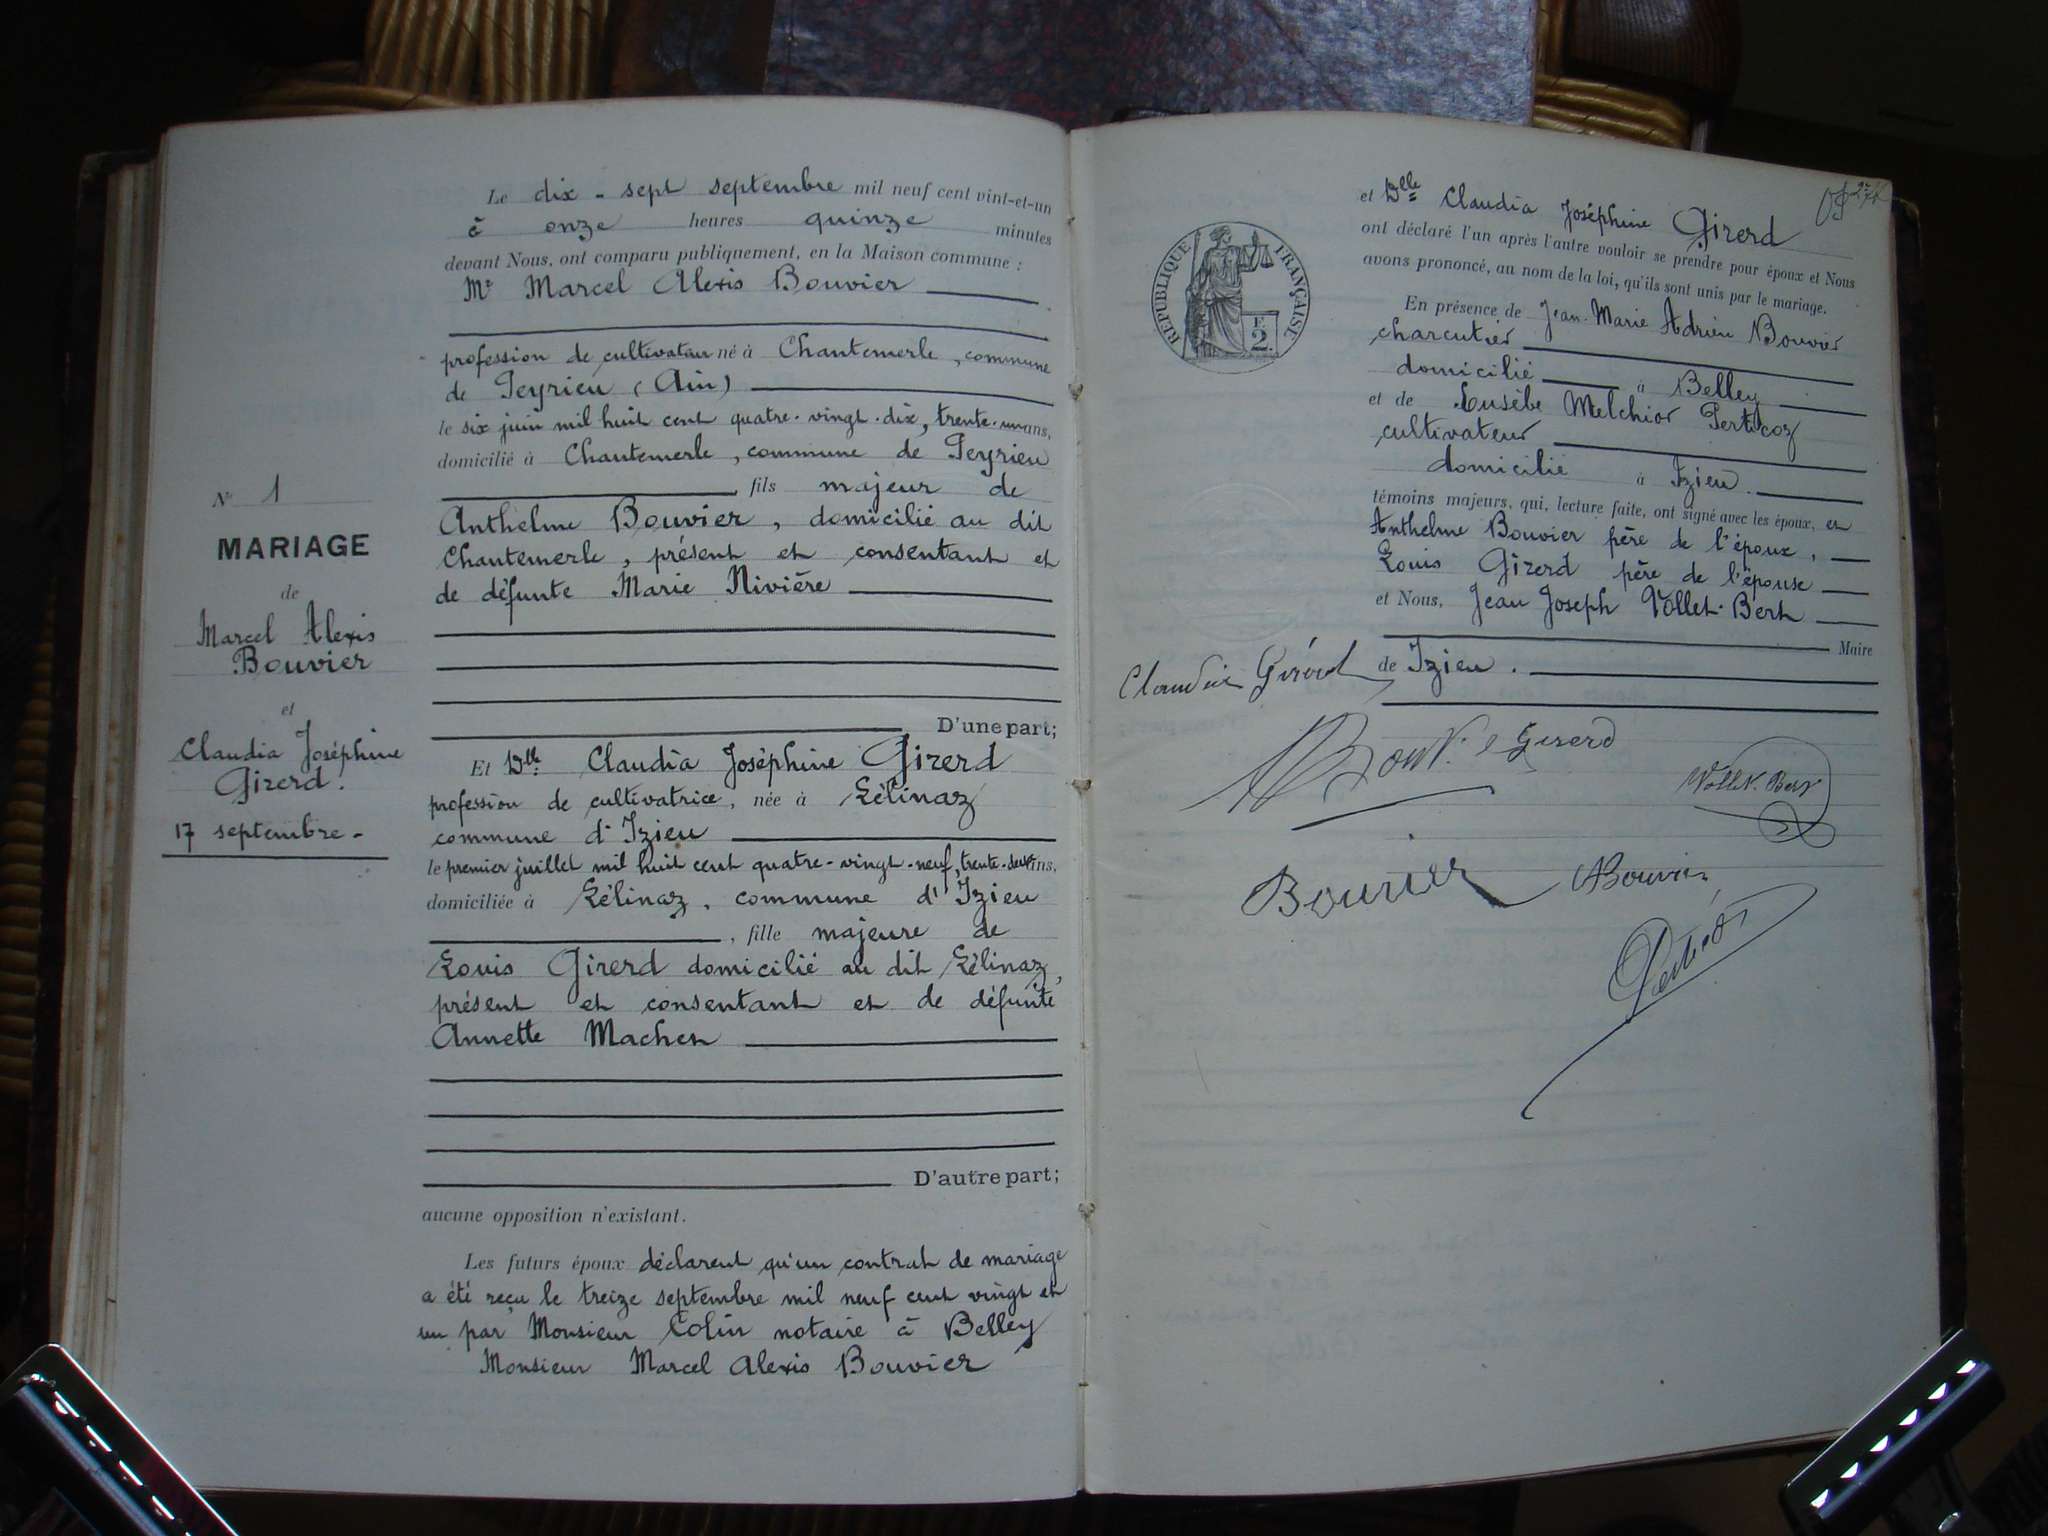 Le dix-sept septembre mil neuf cent vint-et-un
à onze heures quinze minutes
devant Nous, ont comparu publiquement, en la Maison commune :
Mr Marcel Alexis Bouvier
profession de cultivateur né à Chantemerle, commune
de Peyrieu (Ain)
le six juin mil huit cent quatre-vingt-dix, trente-un ans,
domicilié à Chantemerle, commune de Peyrieu
fils majeur de
Anthelme Bouvier, domicilié au dit
Chantemerle, présent et consentant et
de défunte Marie Nivière
D'une part;
Et Dlle Claudia Joséphine Girerd
profession de cultivatrice, née à Lélinaz
commune d'Izieu
le premier juillet mil huit cent quatre-vingt-neuf, trente-deux ans,
domiciliée à Lélinaz, commune d'Izieu
, fille majeure de
Louis Girerd domicilié au dit Lélinaz,
présent et consentant et de défunte
Annette Machet
D'autre part;
aucune opposition n'existant.
Les futurs époux déclarent qu'un contrat de mariage
a été reçu le treize septembre mil neuf cent vingt et
un par Monsieur Colin notaire à Belley
Monsieur Marcel Alexis Bouvier
N° 1
MARIAGE
de
Marcel Alexis
Bouvier
et
Claudia Joséphine
Girerd.
17 septembre-
et Dlle Claudia Joséphine Girerd
ont déclaré l'un après l'autre vouloir se prendre pour époux et Nous
avons prononcé, au nom de la loi, qu'ils sont unis par le mariage.
En présence de Jean-Marie Adrien Bouvier
charcutier
domicilié à Belley
et de Eusèbe Melchior Perticoz
cultivateur
domicilié à Izieu.
témoins majeurs, qui, lecture faite, ont signé avec les époux, et
Anthelme Bouvier père de l'époux,
Louis Girerd père de l'épouse
et Nous, Jean Joseph Vollet-Bert
Maire
de Izieu.
RÉPUBLIQUE FRANÇAISE
F.
2.
Claudia Girerd
Girerd
Vollet-Bert
Bouvier
Bouvier
Perticoz